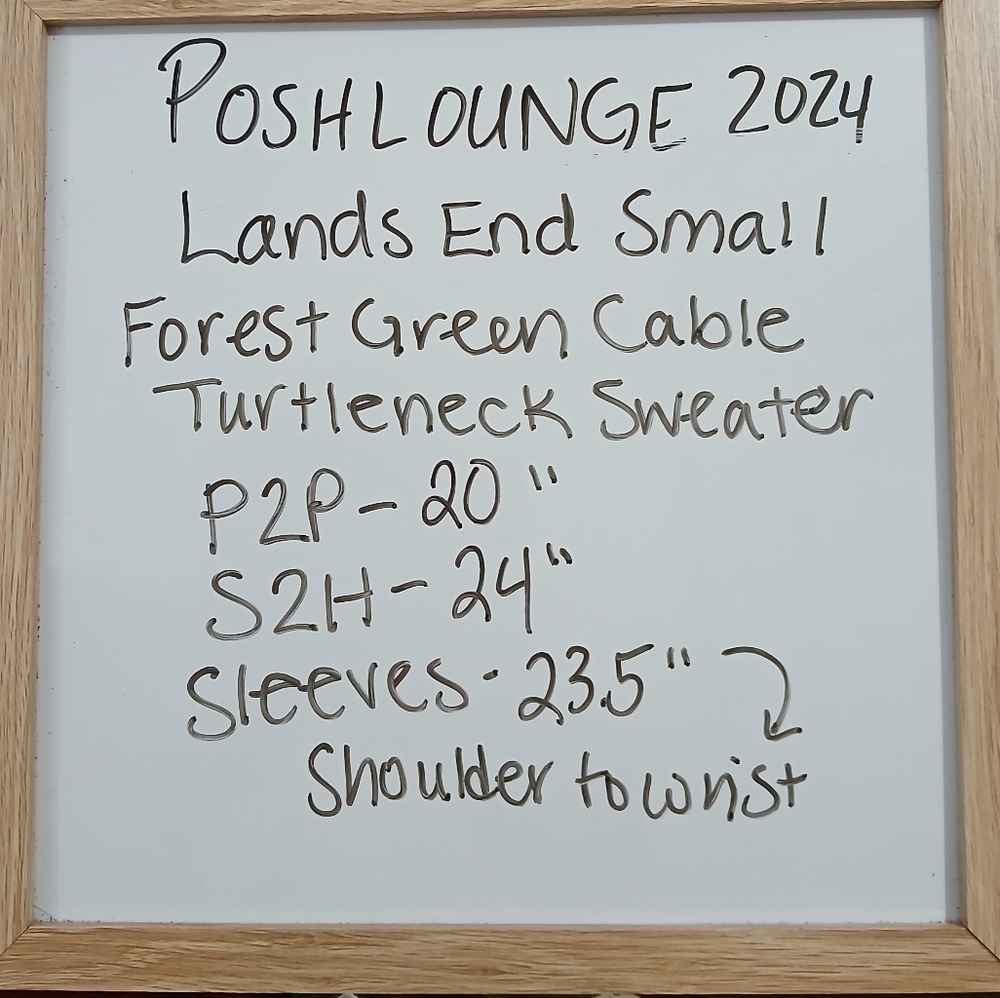 POSHLOUNGE 2024
Lands End Small
Forest Green Cable
Turtleneck Sweater
P2P - 20"
S2H - 24"
Sleeves - 23.5"
Shoulder to wrist